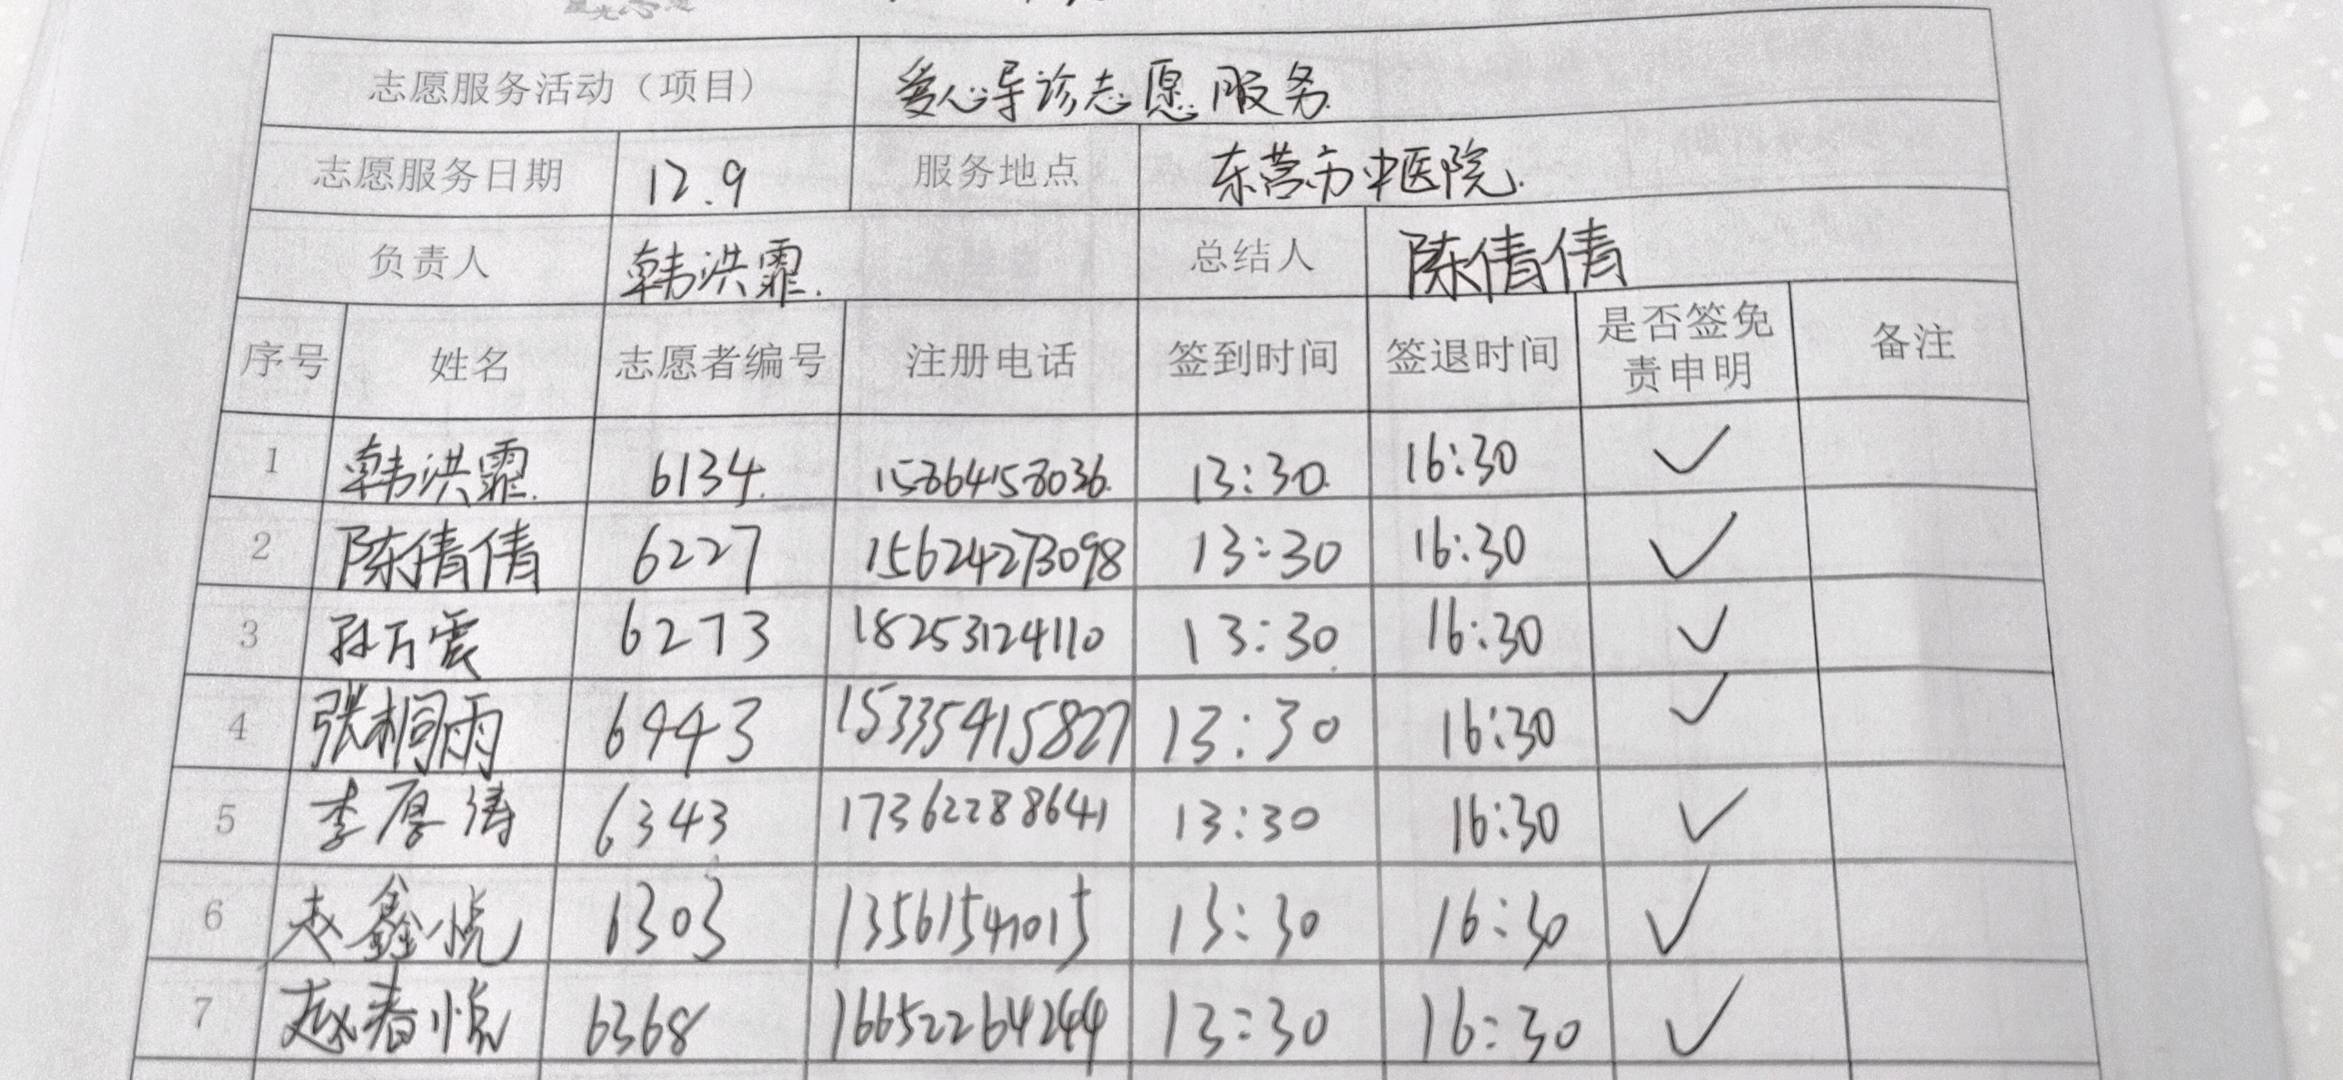 志愿服务活动（项目） 爱心导诊志愿服务
志愿服务日期 12.9 服务地点 东营市中医院.
负责人 韩洪霏. 总结人 陈倩倩
序号 姓名 志愿者编号 注册电话 签到时间 签退时间 是否签免责申明 备注
1 韩洪霏. 6134. 15864158036. 13:30. 16:30 ✓
2 陈倩倩 6227 15624273098 13:30 16:30 ✓
3 孙万震 6273 18253124110 13:30 16:30 ✓
4 张桐雨 6443 15335415827 13:30 16:30 ✓
5 李厚涛 6343 17362288641 13:30 16:30 ✓
6 赵鑫悦 6303 13561541015 13:30 16:30 ✓
7 赵春悦 6368 16652264244 13:30 16:30 ✓